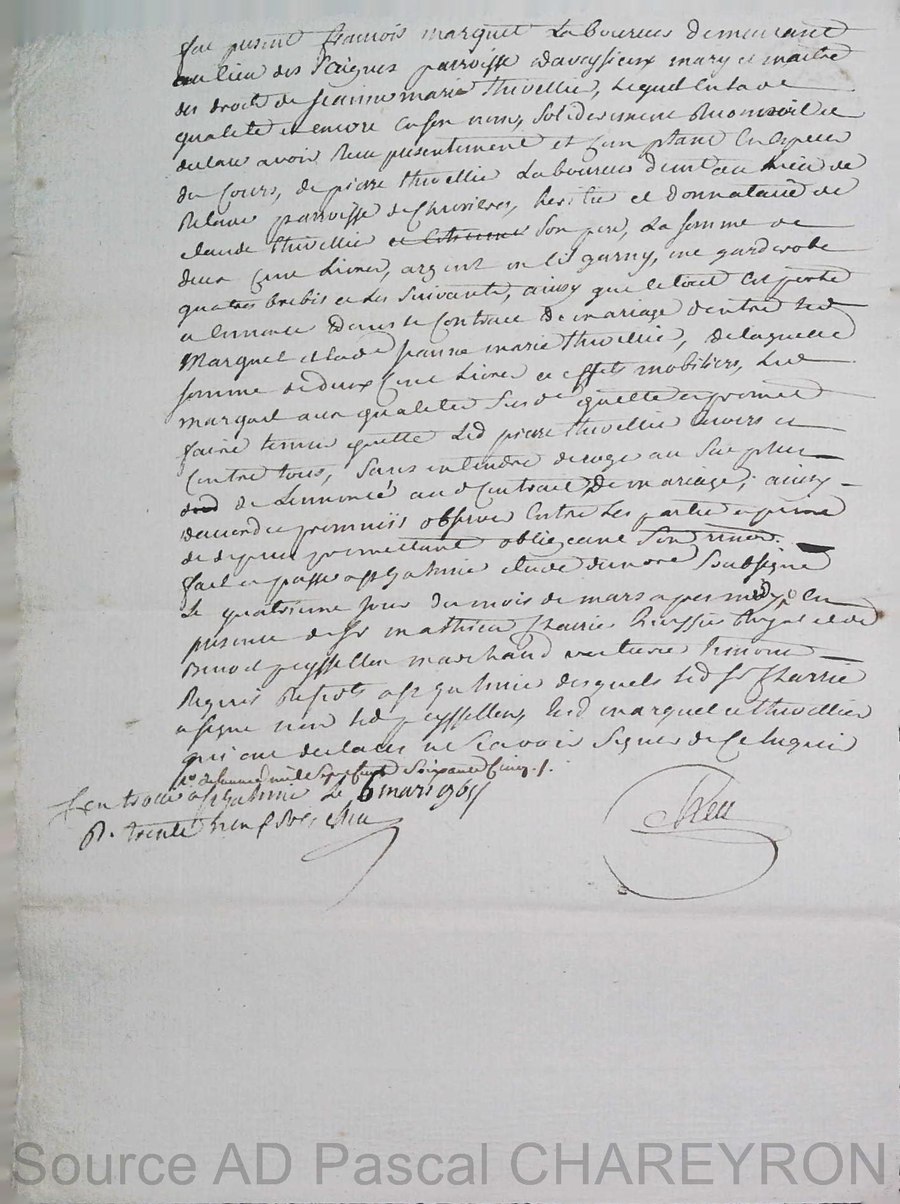 fut present francois marguet Laboureur demeurant
au lieu des Saignes parroisse daveysieux mary et maitre
des droits de Jeanne marie thivellier, Lequel en lad
qualité et encore en son nom, solidairement Reconnoit et
declare avoir Recu presentement et comptant en Espece
du Cours, de pierre thivellier Laboureur demt au Lieu de
parroisse de Chevrieres, heritier et donnataire de
claude thivellier son pere, La somme de
deux Cent Livres, argent un lit garny, une garderobe
quatres brebis et Les Suivante, ainsy que le tout Est porté
a lenoncé dans le Contract de mariage dentre led
Marguet et lad Jeanne marie thivellier, de laquelle
somme de deux Cent Livres et effets mobiliers, led
marguet aux qualités susd quitte et promet
faire tenir quitte Led pierre thivellier Envers et
Contre tous, sans entendre deroger au surplus
de Lenoncé aud Contract de mariage, ainsy
accordé promis observer Entre Les parties a peine
de depens promettant obligeant Renon
fait et passé a St galmier etude du nore Soubsigné
Le quatrieme jour du mois de mars apres midy En
presence de Sr mathieu Charrier huissier Royal et de
Benoit peyssellon marchand
Requis a St galmier desquels led Sr Charrier
a signé non led peyssellon, led marguet et thivellier
qui ont declarés ne Scavoir Signer de Ce Enquis
de Lannée mille Sept Cent Soixante Cinq ./.
Controllé a St galmier Le 6 mars 1765
R. trente neuf sols